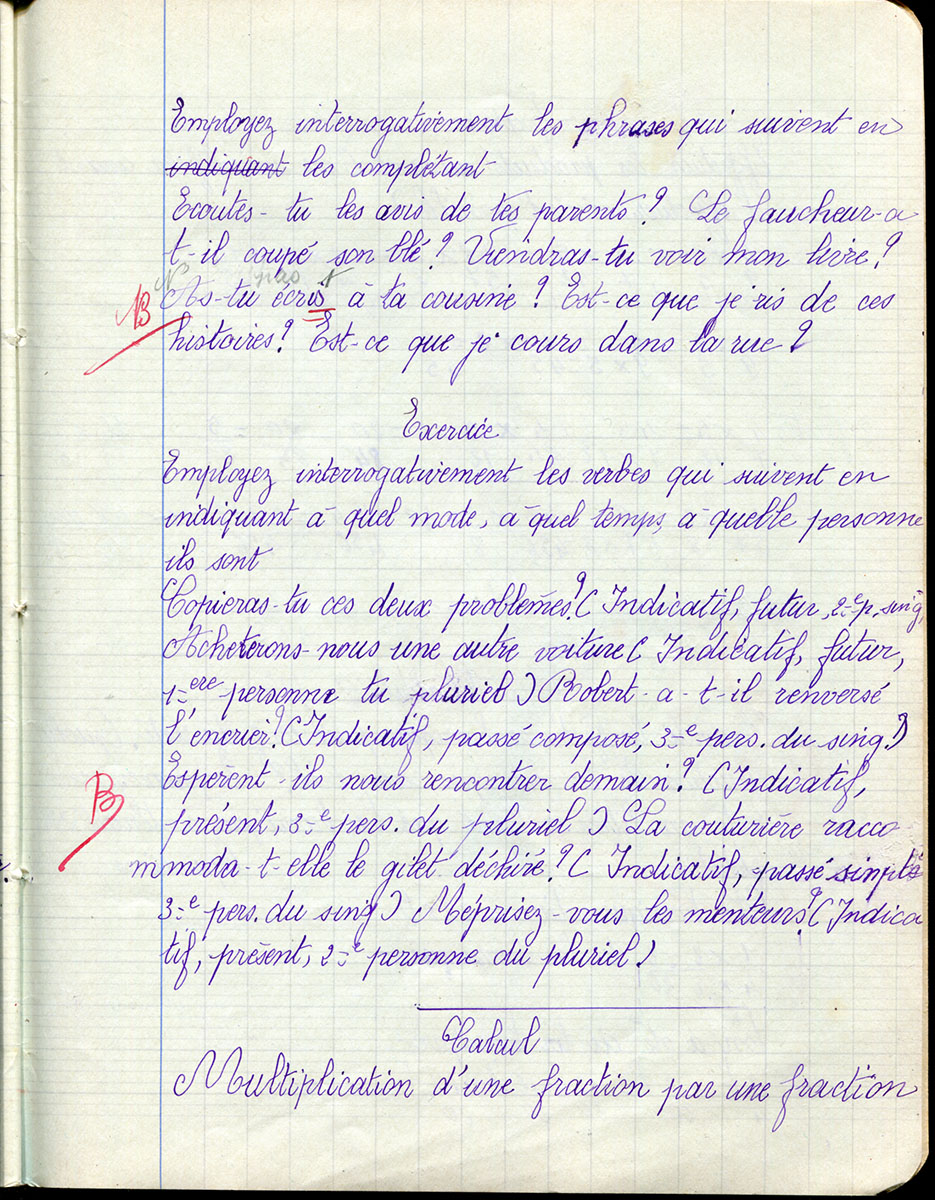 Employez interrogativement les phrases qui suivent en
indiquant les complétant
Ecoutes-tu les avis de tes parents? Le faucheur-a
t-il coupé son blé? Viendras-tu voir mon livre?
pas t
B As-tu écris à ta cousine? Est-ce que je ris de ces
histoires? Est-ce que je cours dans la rue?
Exercice
Employez interrogativement les verbes qui suivent en
indiquant à quel mode, à quel temps, à quelle personne
ils sont
Copieras-tu ces deux problèmes? (Indicatif, futur, 2e p. sing,
Acheterons-nous une autre voiture (Indicatif, futur,
1ere personne tu pluriel) Robert-a-t-il renversé
l'encrier? (Indicatif, passé composé, 3e pers. du sing.)
B Espèrent-ils nous rencontrer demain? (Indicatif,
présent, 3e pers. du pluriel) La couturière racco
mmoda-t-elle le gilet déchiré? (Indicatif, passé simple
3e pers. du sing) Méprisez-vous les menteurs? (Indica
tif, présent, 2e personne du pluriel)
Calcul
Multiplication d'une fraction par une fraction